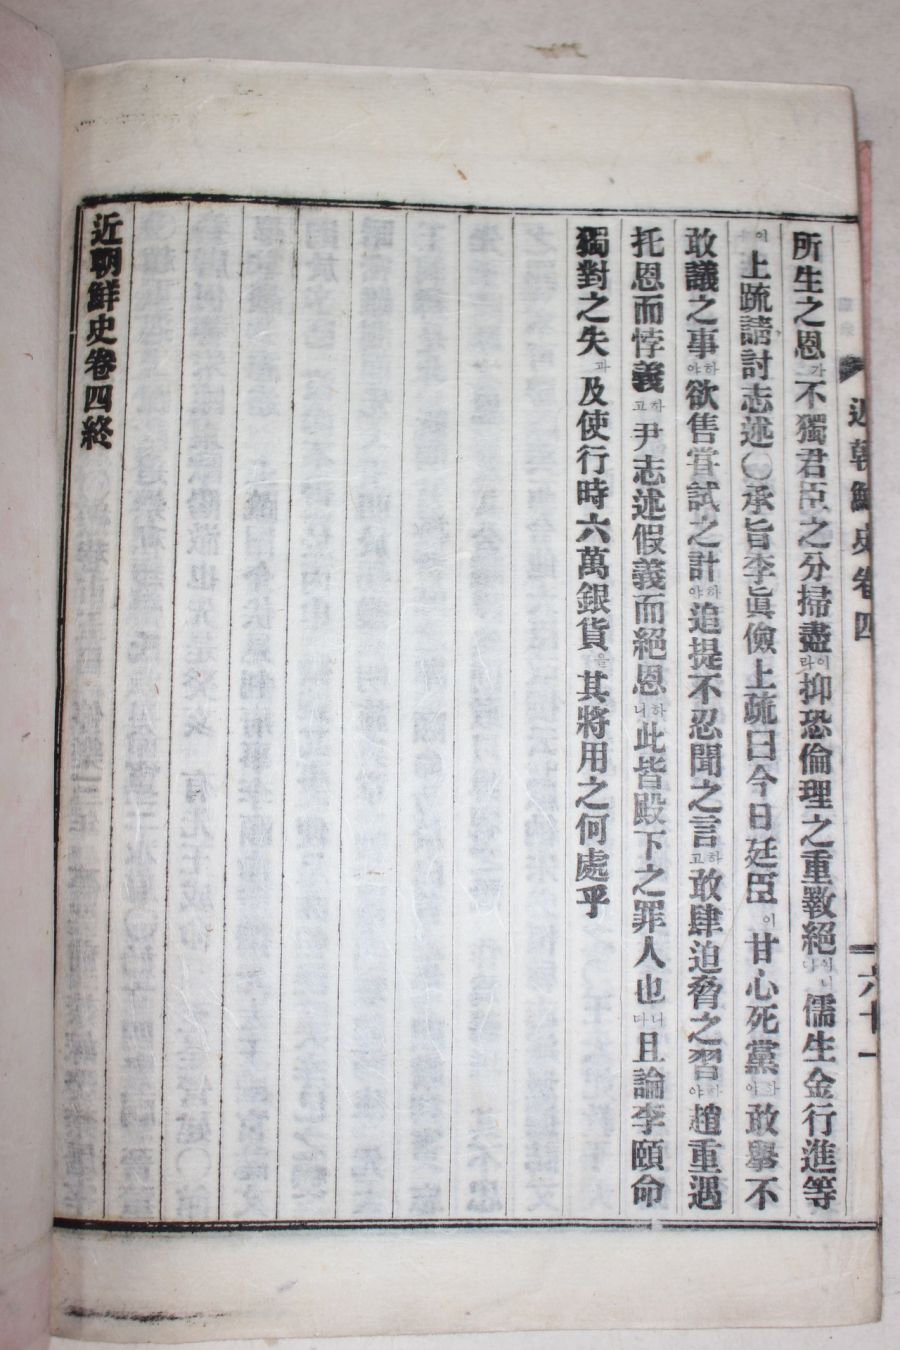 近朝鮮史卷四
六十一
所生之恩가不獨君臣之分掃盡이라抑恐倫理之重敎絕이니이다儒生金行進等
이上疏請討志述〇承旨李眞儉上疏曰今日廷臣이甘心死黨하야敢擧不
敢議之事하야欲售嘗試之計하야追提不忍聞之言하고敢肆迫脅之習하야趙重遇
托恩而悖義하고尹志述假義而絕恩하니此皆殿下之罪人也니다且論李頤命
獨對之失과及使行時六萬銀貨을其將用之何處乎
近朝鮮史卷四終